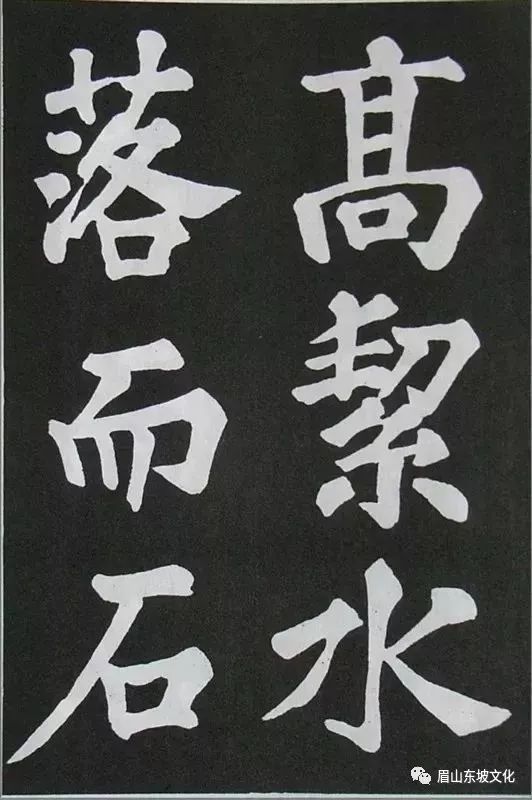 髙絜水
落而石
眉山东坡文化